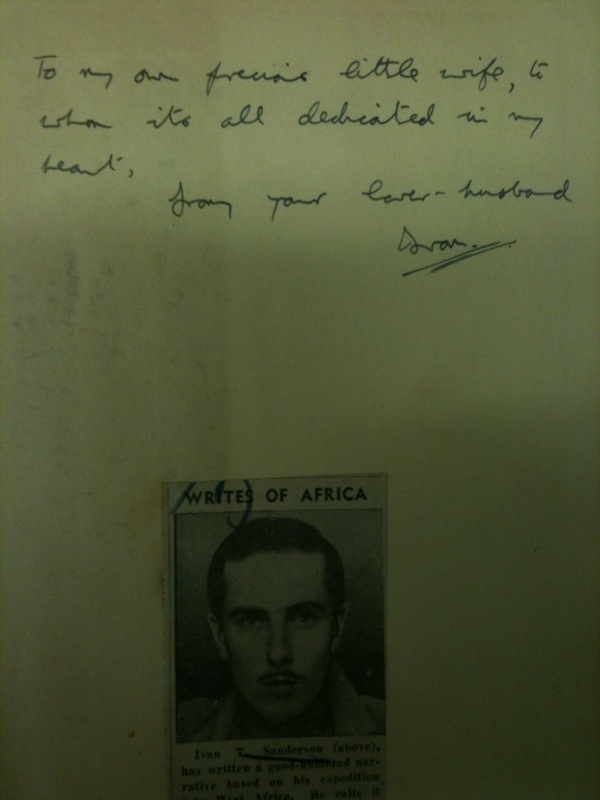 To my own precious little wife, to
whom its all dedicated in my
heart,
from your lover-husband
Ivan.
WRITES OF AFRICA
Ivan T. Sanderson (above),
has written a good-humored nar-
rative based on his expedition
into West Africa. He calls it